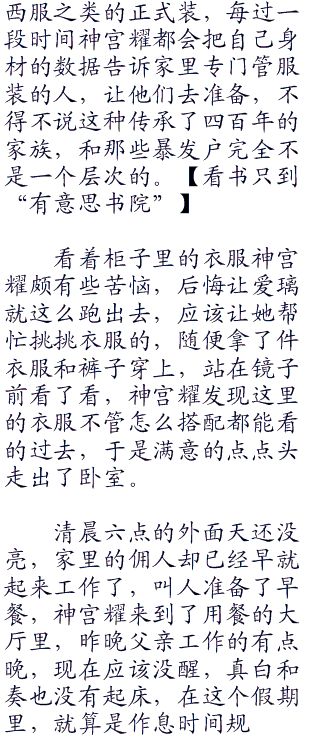 西服之类的正式装，每过一
段时间神宫耀都会把自己身
材的数据告诉家里专门管服
装的人，让他们去准备，不
得不说这种传承了四百年的
家族，和那些暴发户完全不
是一个层次的。【看书只到
“有意思书院”】
看着柜子里的衣服神宫
耀颇有些苦恼，后悔让爱璃
就这么跑出去，应该让她帮
忙挑挑衣服的，随便拿了件
衣服和裤子穿上，站在镜子
前看了看，神宫耀发现这里
的衣服不管怎么搭配都能看
的过去，于是满意的点点头
走出了卧室。
清晨六点的外面天还没
亮，家里的佣人却已经早就
起来工作了，叫人准备了早
餐，神宫耀来到了用餐的大
厅里，昨晚父亲工作的有点
晚，现在应该没醒，真白和
奏也没有起床，在这个假期
里，就算是作息时间规